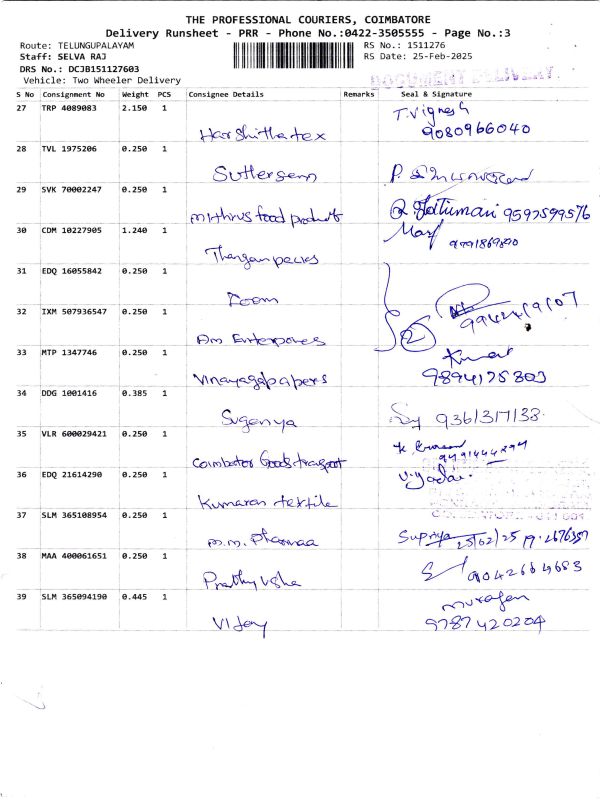 THE PROFESSIONAL COURIERS, COIMBATORE
Delivery Runsheet - PRR - Phone No.:0422-3505555 - Page No.:3
Route: TELUNGUPALAYAM RS No.: 1511276
Staff: SELVA RAJ RS Date: 25-Feb-2025
DRS No.: DCJB151127603
Vehicle: Two Wheeler Delivery
DOCUMENT DELIVERY
S No Consignment No Weight PCS Consignee Details Remarks Seal & Signature
27 TRP 4089083 2.150 1 T. Vignesh
Harshitha tex 9080966040
28 TVL 1975206 0.250 1
P.
29 SVK 70002247 0.250 1
mithrus food product 9597599576
30 CDM 10227905 1.240 1 Mary
31 EDQ 16055842 0.250 1
Zoom
32 IXM 507936547 0.250 1
Am Enterprises 2
33 MTP 1347746 0.250 1 Kumar
Vinayaga papers 9894175803
34 DDG 1001416 0.385 1
Suganya 9361317138
35 VLR 600029421 0.250 1
Coimbator Goods transport
36 EDQ 21614290 0.250 1
Kumaran textile
37 SLM 365108954 0.250 1
m.m. Pharmaa Supriya 25/02/25
38 MAA 400061651 0.250 1
Prathyusha 9042664683
39 SLM 365094190 0.445 1 murugan
Vijay 9787420204